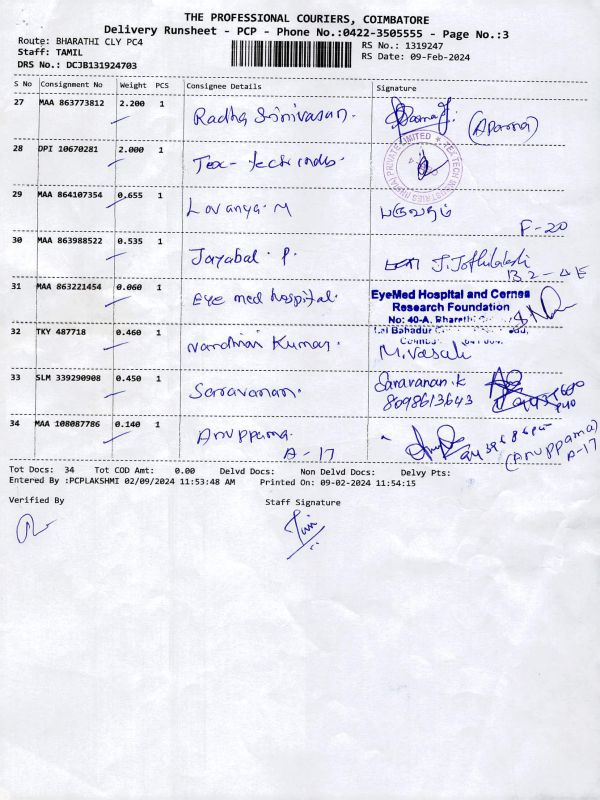 THE PROFESSIONAL COURIERS, COIMBATORE
Delivery Runsheet - PCP - Phone No.:0422-3505555 - Page No.:3
Route: BHARATHI CLY PC4
RS No.: 1319247
Staff: TAMIL
RS Date: 09-Feb-2024
DRS No.: DCJB131924703
S No Consignment No Weight PCS Consignee Details Signature
27 MAA 863773812 2.200 1 Radha Srinivasan. (Aparna)
28 DPI 10670281 2.000 1 Tex-tech indus.
TEX TECH INDUSTRIES (INDIA) PRIVATE LIMITED
29 MAA 864107354 0.655 1 Lavanya. M
F-20
30 MAA 863988522 0.535 1 Jayabal. P. J. Jothilakshi
B2-4E
31 MAA 863221454 0.060 1 Eye med hospital.
EyeMed Hospital and Cornea
Research Foundation
No: 40-A, Bharathi
Lal Bahadur
32 TKY 487718 0.460 1 Vardhini Kumar. M. Vasali
33 SLM 339290908 0.450 1 Saravanan. Saravanan.k
8098613643
34 MAA 108087786 0.140 1 Anuppama.
A-17
(Anuppama)
A-17
Tot Docs: 34 Tot COD Amt: 0.00 Delvd Docs: Non Delvd Docs: Delvy Pts:
Entered By :PCPLAKSHMI 02/09/2024 11:53:48 AM Printed On: 09-02-2024 11:54:15
Verified By Staff Signature